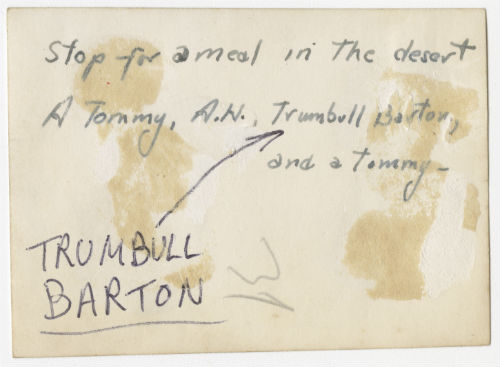 Stop for a meal in the desert
A Tommy, A.W., Trumbull Barton,
and a tommy-
TRUMBULL
BARTON